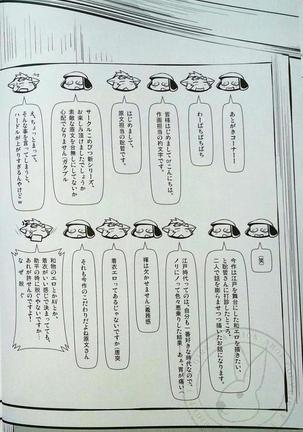 あとがきコーナー!
わーぱちぱちぱち
皆様はじめましてorこんにちは。
作画担当の灼文字です。
はじめまして、
原文担当の聡宮です。
サークルこめびつ新シリーズ、
お楽しみ頂けましたでしょうか
素敵な原文を台無しにしてないか
心配でなりません(ガクブル
え、ちょっとまって、
そんな事を言ってしまうと、
ハードルが上がりすぎるんやけどw
(笑)
今作は江戸を舞台にした和エロを描きたい、
と聡宮さんに打診したところ、
二人で話を膨らませつつ描いたお話になります。
江戸時代ってのは、自分も一番好きな時代なので、
ノリにノって色々悪乗りした結果…あぁ、胃が痛い…
褌は欠かせません(義務感
着衣エロってあるじゃないですか(唐突
それも今作のこだわりだよね原文さん
和物のエロとかAVとか、
着衣がいい感じで決まってても、
助平の時に脱ぐやないですか、
あれが許せんのですよ!
なぜ脱ぐ